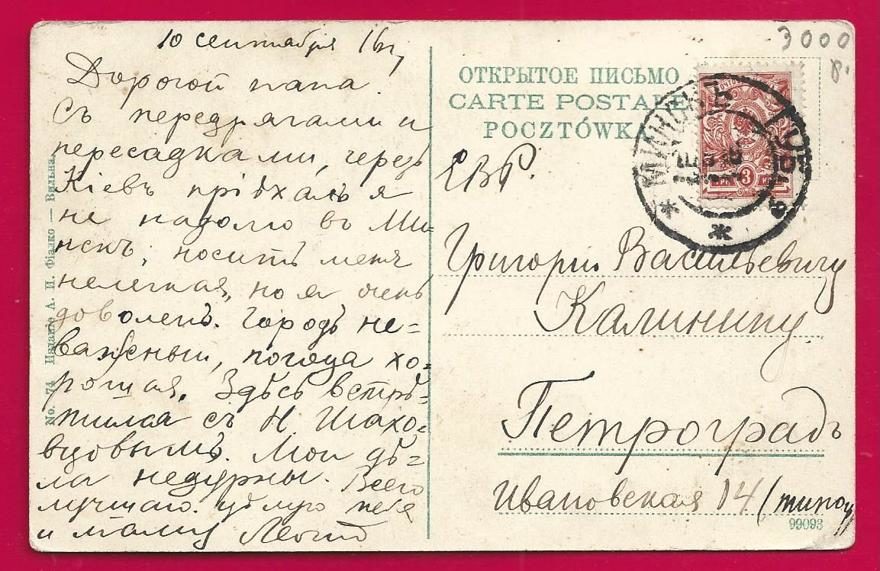 10 сентября 16 г,
Дорогой папа.
Съ передрягами и
пересадками, черезъ
Кіевъ пріѣхалъ я
не надолго въ Ми-
нскъ, носитъ меня
нелегкая, но я очень
доволенъ. Городъ не-
важный, погода хо-
рошая. Здѣсь встрѣ-
тился съ Н. Шахо-
вцовымъ. Мои дѣ-
ла недурны. Всего
лучшаго. цѣлую тебя
и маму
No. 74 Изданіе А. П. Фіалко — Вильна.
3000
р.
ОТКРЫТОЕ ПИСЬМО
CARTE POSTALE
POCZTÓWKA
МИНСКЪ ГУБ.
3
Е.В.Р.
Григорію Васильевичу
Калинину
Петроградъ
Ивановская 14 (типог)
99093